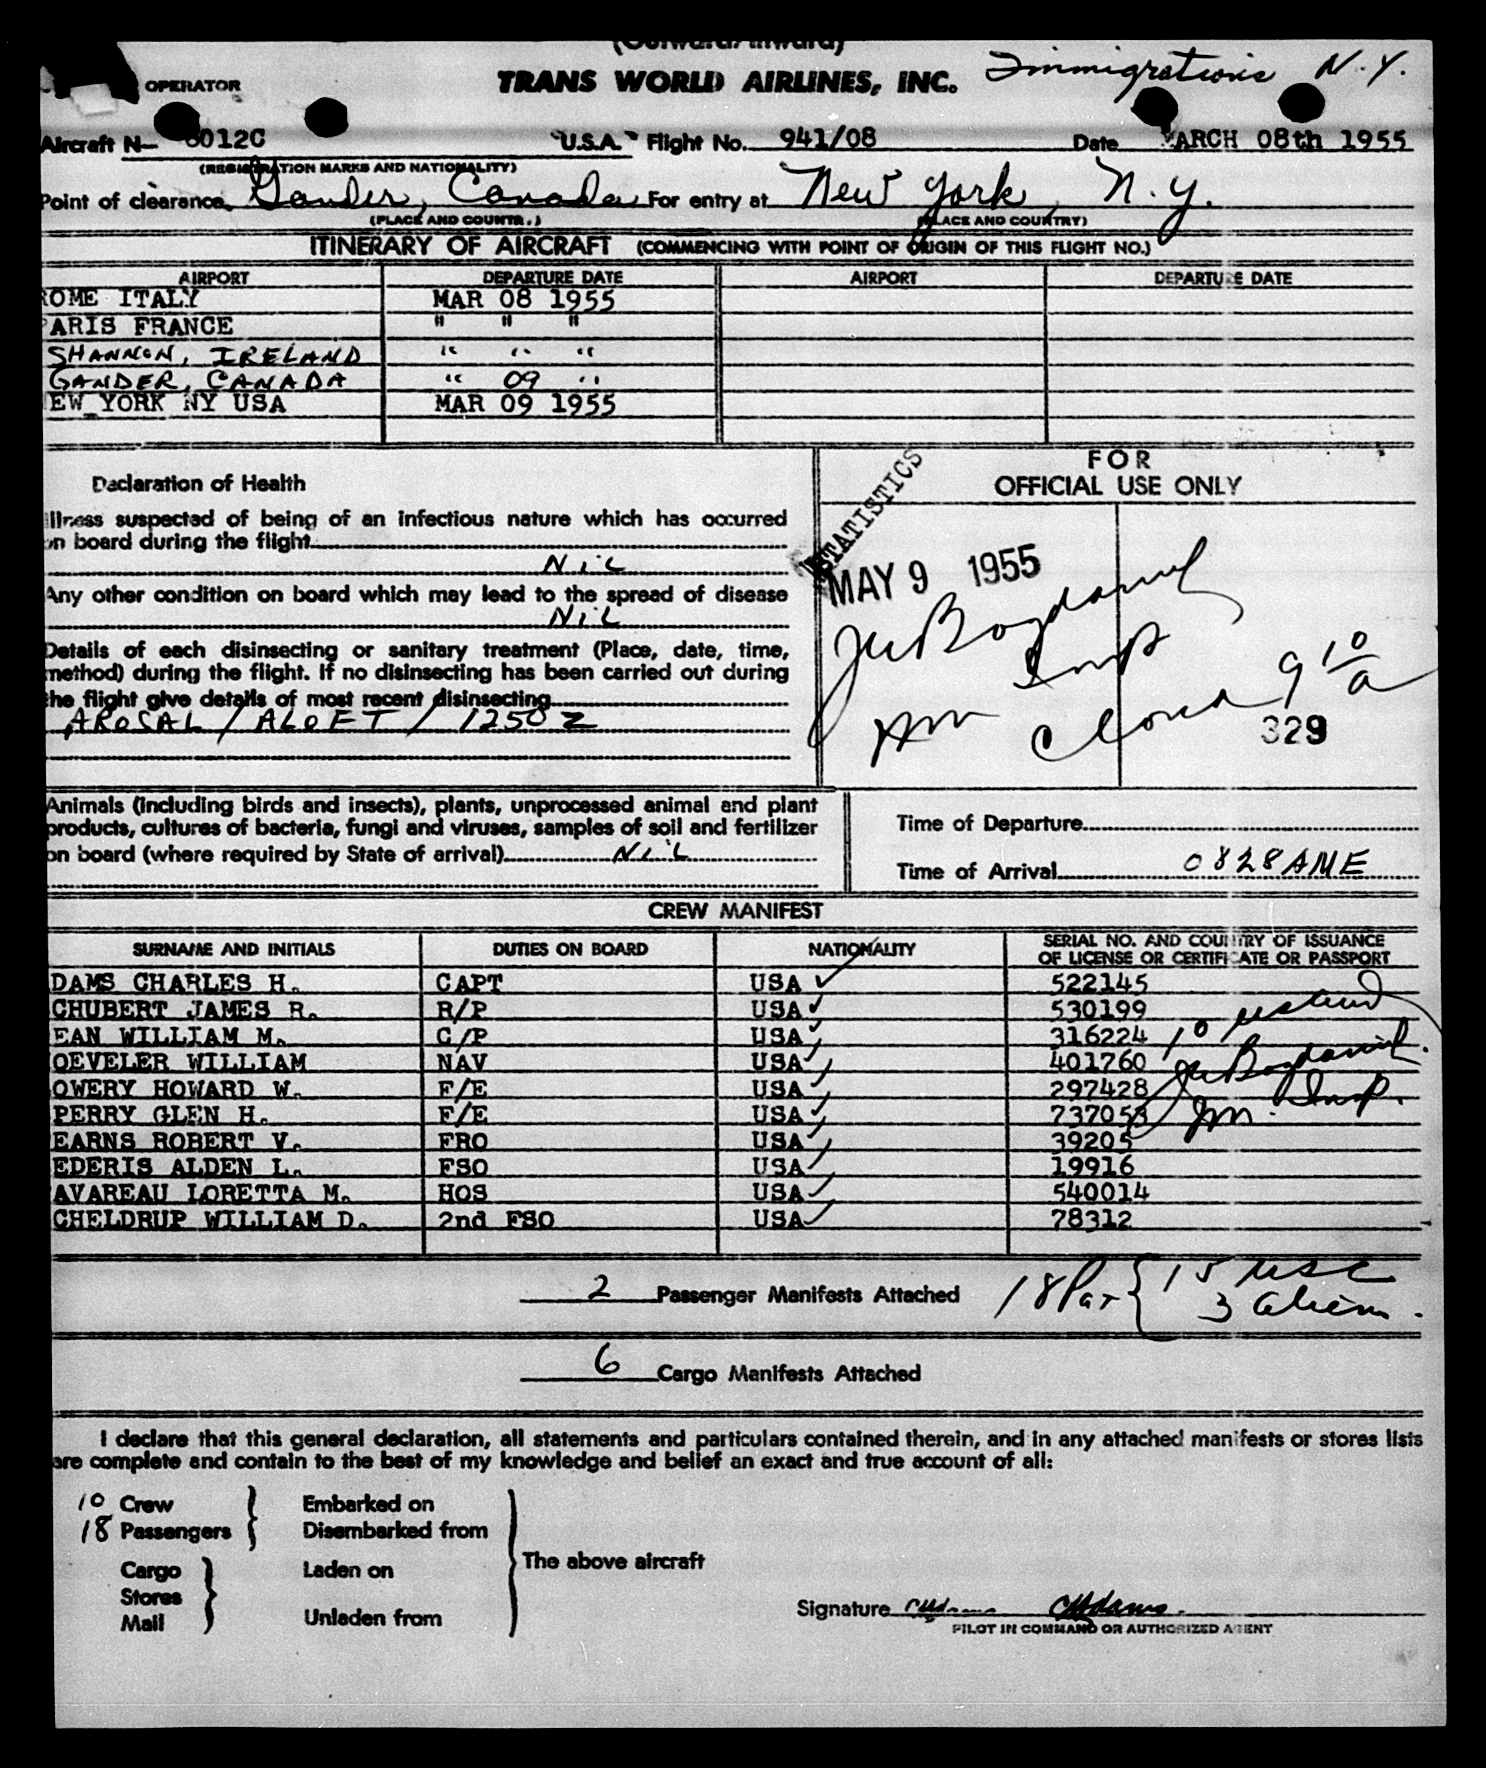 (Outward/Inward)
OPERATOR TRANS WORLD AIRLINES, INC. Immigrations N.Y.
Aircraft N- 6012C "U.S.A." Flight No. 941/08 Date MARCH 08th 1955
(REGISTRATION MARKS AND NATIONALITY)
Point of clearance Gander, Canada For entry at New York, N.Y.
(PLACE AND COUNTRY) (PLACE AND COUNTRY)
ITINERARY OF AIRCRAFT (COMMENCING WITH POINT OF ORIGIN OF THIS FLIGHT NO.)
AIRPORT DEPARTURE DATE AIRPORT DEPARTURE DATE
ROME ITALY MAR 08 1955
PARIS FRANCE " " "
SHANNON, IRELAND " " "
GANDER, CANADA " 09 "
EW YORK NY USA MAR 09 1955
FOR
OFFICIAL USE ONLY
Declaration of Health
Illness suspected of being of an infectious nature which has occurred
on board during the flight
NIL
Any other condition on board which may lead to the spread of disease
NIL
Details of each disinsecting or sanitary treatment (Place, date, time,
method) during the flight. If no disinsecting has been carried out during
the flight give details of most recent disinsecting
AROSAL / ALOFT / 1250 Z
STATISTICS
MAY 9 1955
Bogdaniel
Insp
Imm Cloud 9 10/a
329
Animals (including birds and insects), plants, unprocessed animal and plant
products, cultures of bacteria, fungi and viruses, samples of soil and fertilizer
on board (where required by State of arrival) NIL
Time of Departure
Time of Arrival 0828AME
CREW MANIFEST
SURNAME AND INITIALS DUTIES ON BOARD NATIONALITY SERIAL NO. AND COUNTRY OF ISSUANCE
OF LICENSE OR CERTIFICATE OR PASSPORT
DAMS CHARLES H. CAPT USA 522145
CHUBERT JAMES R. R/P USA 530199
EAN WILLIAM M. C/P USA 316224
OEVELER WILLIAM NAV USA 401760
OWERY HOWARD W. F/E USA 297428
PERRY GLEN H. F/E USA 737053
EARNS ROBERT V. FRO USA 39205
EDERIS ALDEN L. FSO USA 19916
AVAREAU LORETTA M. HOS USA 540014
CHELDRUP WILLIAM D. 2nd FSO USA 78312
10
Bogdaniel
Imm. Insp.
2 Passenger Manifests Attached 18 Pas { 15 USC
3 Aliens.
6 Cargo Manifests Attached
I declare that this general declaration, all statements and particulars contained therein, and in any attached manifests or stores lists
are complete and contain to the best of my knowledge and belief an exact and true account of all:
10 Crew Embarked on
18 Passengers Disembarked from
The above aircraft
Cargo Laden on
Stores
Mail Unladen from
Signature CHAdams CHAdams.
PILOT IN COMMAND OR AUTHORIZED AGENT